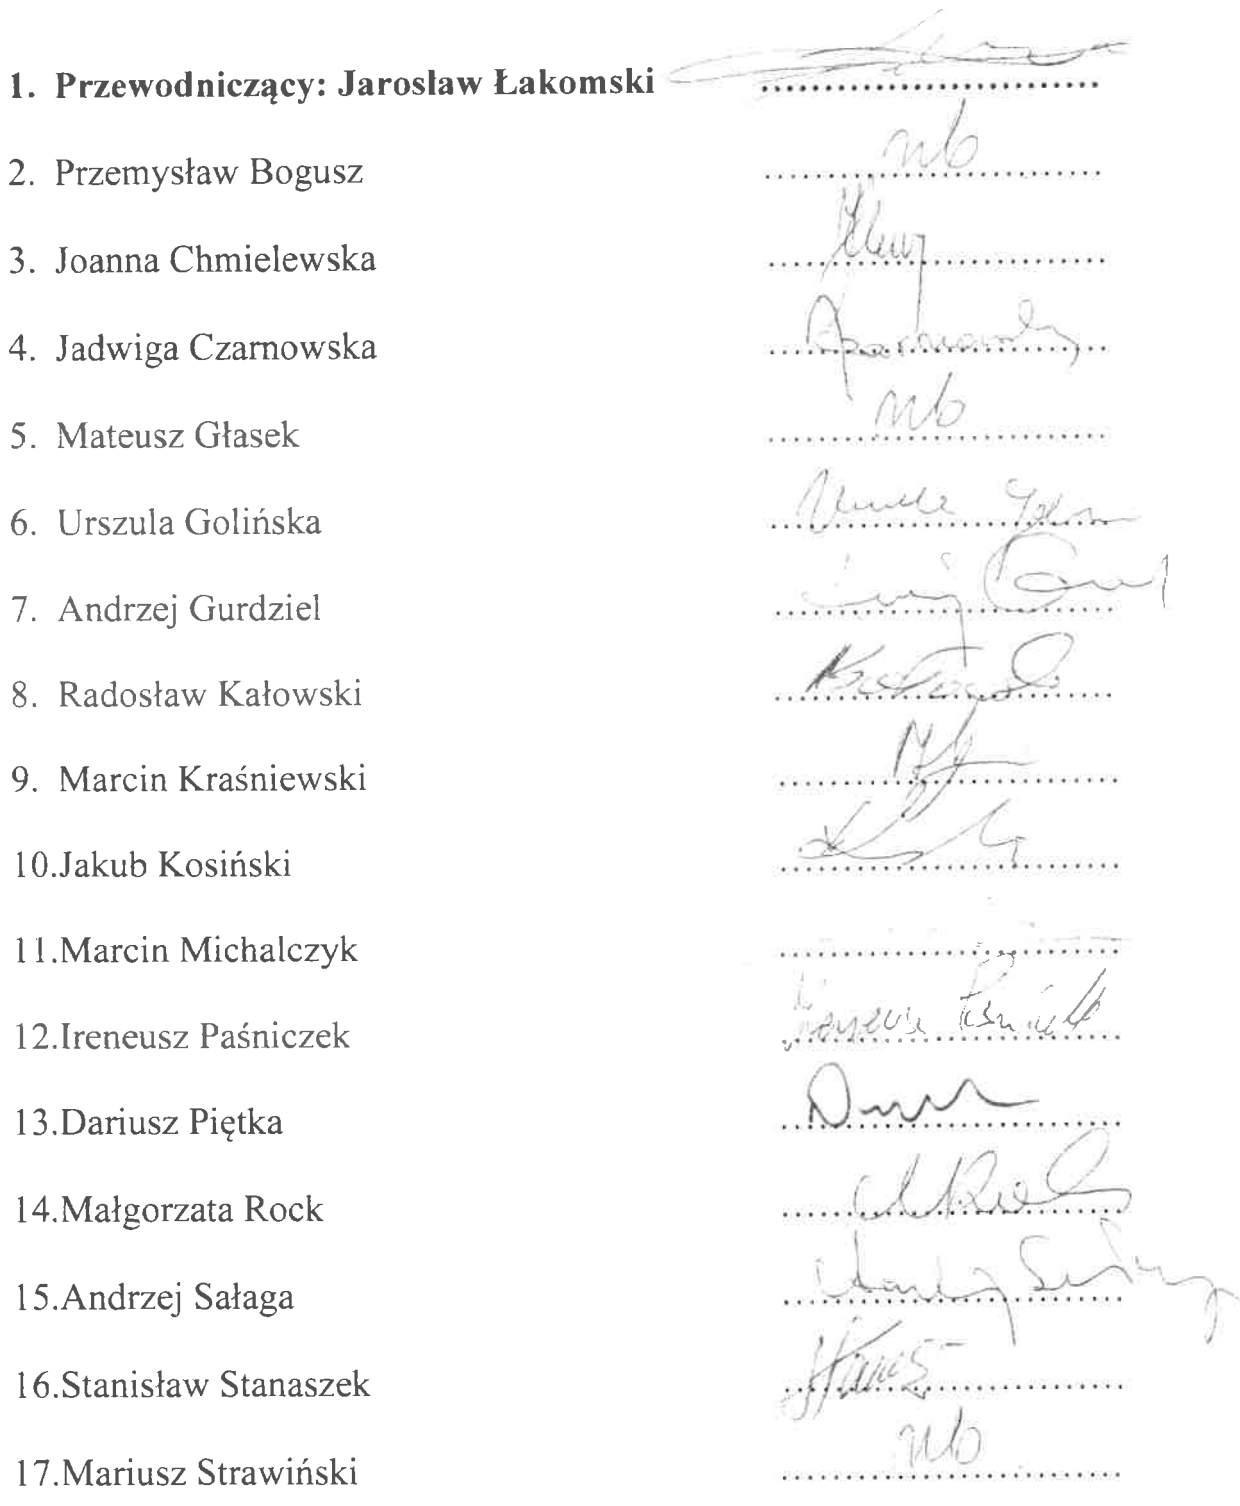 1. Przewodniczący: Jarosław Łakomski ........................
2. Przemysław Bogusz nb
3. Joanna Chmielewska
4. Jadwiga Czarnowska
5. Mateusz Głasek nb
6. Urszula Golińska
7. Andrzej Gurdziel
8. Radosław Kałowski
9. Marcin Kraśniewski
10.Jakub Kosiński
11.Marcin Michalczyk
12.Ireneusz Paśniczek
13.Dariusz Piętka
14.Małgorzata Rock
15.Andrzej Sałaga
16.Stanisław Stanaszek
17.Mariusz Strawiński nb